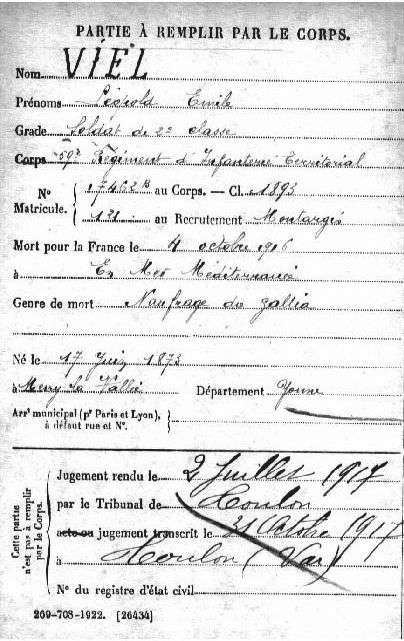 PARTIE À REMPLIR PAR LE CORPS.
Nom VIEL
Prénoms Léopold Emile
Grade Soldat de 2e classe
Corps 59e Régiment d'Infanterie Territorial
N° Matricule. 17462 B au Corps. — Cl. 1893
121 au Recrutement Montargis
Mort pour la France le 4 octobre 1916
à En Mer Méditerranée
Genre de mort Naufrage du Gallia
Né le 17 Juin 1873
à Merry la Vallée Département Yonne
Arrt municipal (pr Paris et Lyon),
à défaut rue et N°.
Cette partie
n'est pas à remplir
par le Corps.
Jugement rendu le 2 Juillet 1917
par le Tribunal de Toulon
acte ou jugement transcrit le 31 Octobre 1917
à Toulon (Var)
N° du registre d'état civil
209-708-1922. [26434]